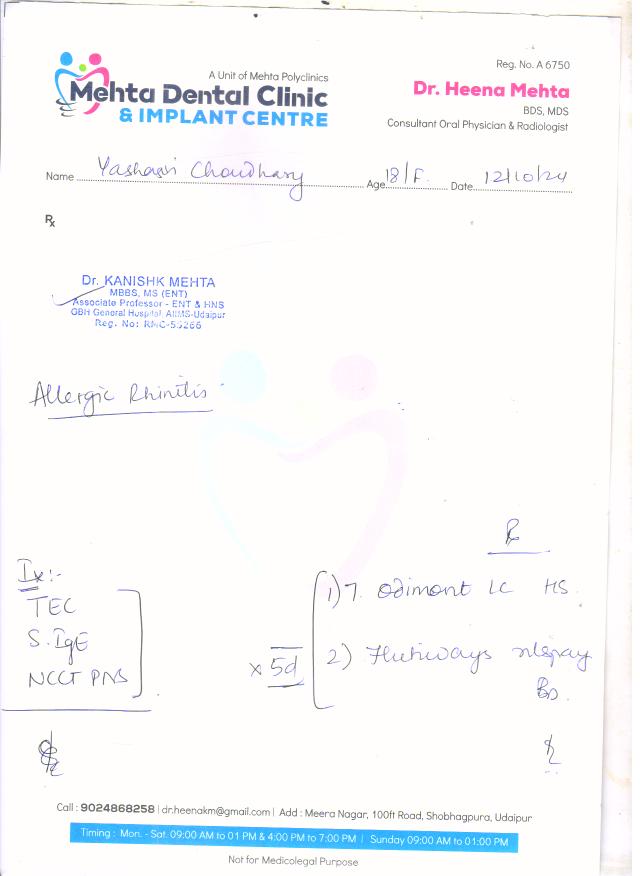 A Unit of Mehta Polyclinics
Mehta Dental Clinic
& IMPLANT CENTRE
Reg. No. A 6750
Dr. Heena Mehta
BDS, MDS
Consultant Oral Physician & Radiologist
Name Yashasvi Choudhary Age 18/F. Date 12/10/24
Rx
Dr. KANISHK MEHTA
MBBS, MS (ENT)
Associate Professor - ENT & HNS
GBH General Hospital, AIIMS-Udaipur
Reg. No: RMC-
Allergic Rhinitis
Rx
Ix:-
TEC
S.IgE
NCCT PNS
x 5d
1) T. Odimont LC HS
2) Flutiways nlspray
Call : 9024868258 | dr.heenakm@gmail.com | Add : Meera Nagar, 100ft Road, Shobhagpura, Udaipur
Timing : Mon. - Sat. 09:00 AM to 01 PM & 4:00 PM to 7:00 PM | Sunday 09:00 AM to 01:00 PM
Not for Medicolegal Purpose